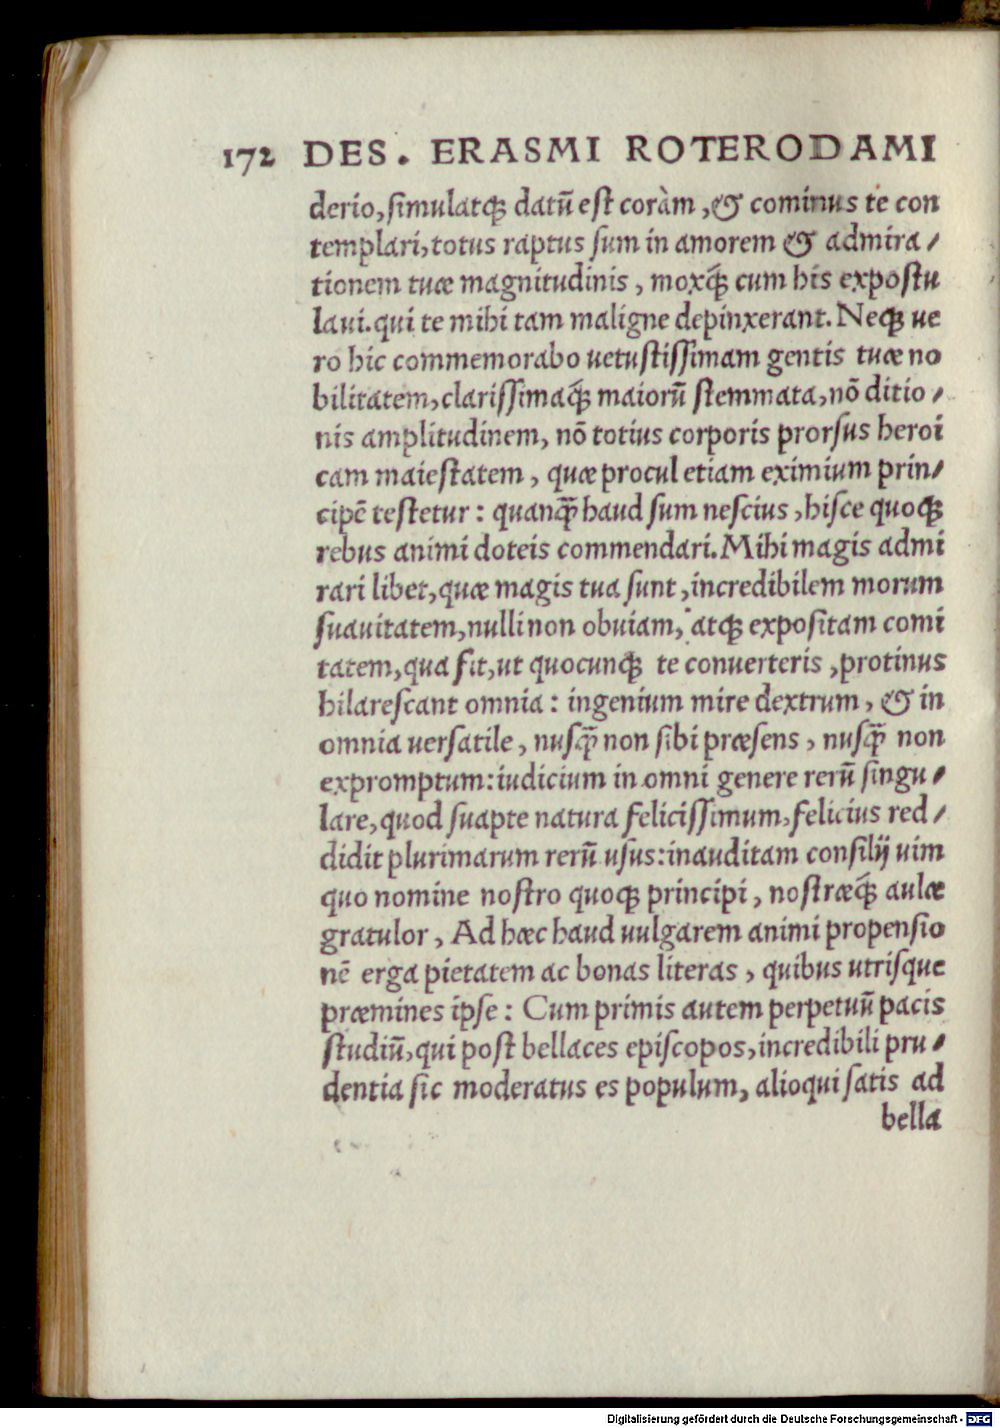 172 DES. ERASMI ROTERODAMI
derio, simulatq; datũ est coràm, & cominus te con
templari, totus raptus sum in amorem & admira/
tionem tuæ magnitudinis, moxq́; cum his expostu
laui. qui te mihi tam maligne depinxerant. Neq; ue
ro hic commemorabo uetustissimam gentis tuæ no
bilitatem, clarissimaq́; maiorũ stemmata, nõ ditio/
nis amplitudinem, nõ totius corporis prorsus heroi
cam maiestatem, quæ procul etiam eximium prin/
cipẽ testetur: quanq̃ haud sum nescius, hisce quoq;
rebus animi doteis commendari. Mihi magis admi
rari libet, quæ magis tua sunt, incredibilem morum
suauitatem, nulli non obuiam, atq; expositam comi
tatem, qua fit, ut quocunq; te conuerteris, protinus
hilarescant omnia: ingenium mire dextrum, & in
omnia uersatile, nusq̃ non sibi præsens, nusq̃ non
expromptum: iudicium in omni genere rerũ singu/
lare, quod suapte natura felicissimum, felicius red/
didit plurimarum rerũ usus: inauditam consilij uim
quo nomine nostro quoq; principi, nostræq́; aulæ
gratulor, Ad hæc haud uulgarem animi propensio
nẽ erga pietatem ac bonas literas, quibus utrisque
præmines ipse: Cum primis autem perpetuũ pacis
studiũ, qui post bellaces episcopos, incredibili pru/
dentia sic moderatus es populum, alioqui satis ad
bella
Digitalisierung gefördert durch die Deutsche Forschungsgemeinschaft - DFG